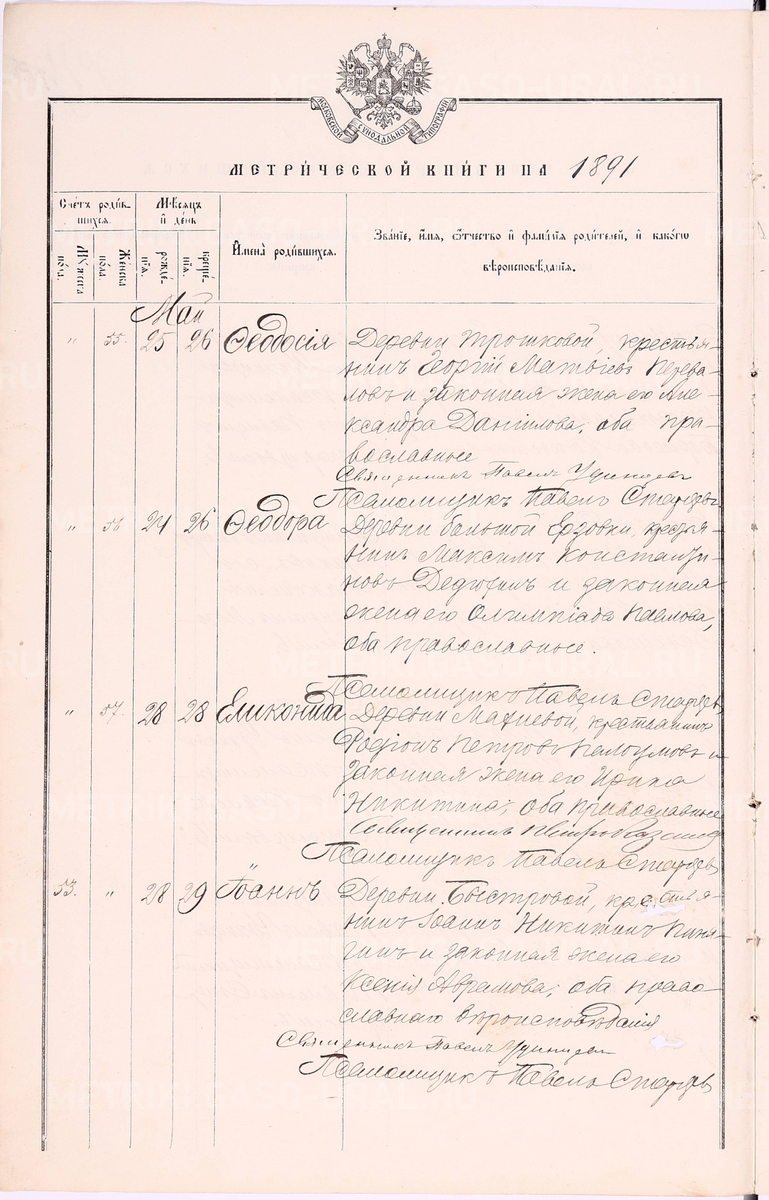 МОСКОВСКОЙ СѴНОДАЛЬНОЙ ТИПОГРАФІИ
МЕТРИ́ЧЕСКОЙ КНИ́ГИ НА 1891
Сче́тъ роди́вшихся.
Мѣсяцъ и де́нь
Имена̀ роди́вшихся.
Зва́нїе, и́мя, ѻ́тчество и фами́лїя роди́телей, и како́гѡ вѣроисповѣ́данїя.
Му́жеска по́ла.
Же́нска по́ла.
рожде́нїя.
креще́нїя.
Май
" 55. 25 26 Ѳеодосія Деревни Трошковой, крестья-
нинъ Георгій Матѳіевъ Перева-
ловъ и законная жена его Але-
ксандра Даніилова, оба пра-
вославные
Священникъ Павелъ
Псаломщикъ Павелъ Старцевъ
" 56 24 26 Ѳеодора Деревни большой Ерзовки, крестья-
нинъ Максимъ Константи-
новъ Дедюхинъ и законная
жена его Олимпіада Павлова,
оба православные.
Псаломщикъ Павелъ Старцевъ
" 57. 28 28 Еликонида Деревни Махневой, крестьянинъ
Родіонъ Петровъ и
законная жена его Ирина
Никитина, оба православные
Священникъ Петръ
Псаломщикъ Павелъ Старцевъ
53. " 28 29 Іоаннъ Деревни Быстровой, крестья-
нинъ Іоаннъ Никитинъ Киня-
гинъ и законная жена его
Ксенія Аврамова, оба право-
славнаго вѣроисповѣданія
Священникъ Павелъ
Псаломщикъ Павелъ Старцевъ